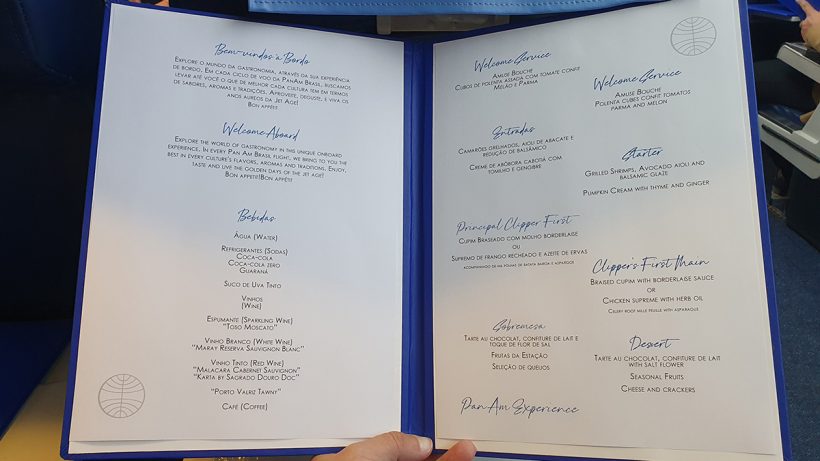 Bem-vindos à Bordo
Explore o mundo da gastronomia, através da sua experiência
de bordo. Em cada ciclo de voo da PanAm Brasil, buscamos
levar até você o que de melhor cada cultura tem em termos
de sabores, aromas e tradições. Aproveite, deguste, e viva os
anos aureos da Jet Age!
Bon appétit
Welcome Aboard
Explore the world of gastronomy in this unique onboard
experience. In every Pan Am Brasil flight, we bring to you the
best in every culture's flavors, aromas and traditions. Enjoy,
taste and live the golden days of the jet age!
Bon appetite!Bon appétit
Bebidas
Água (Water)
Refrigerantes (Sodas)
Coca-cola
Coca-cola zero
Guaraná
Suco de Uva Tinto
Vinhos
(Wine)
Espumante (Sparkling Wine)
"Toso Moscato"
Vinho Branco (White Wine)
"Maray Reserva Sauvignon Blanc"
Vinho Tinto (Red Wine)
"Malacara Cabernet Sauvignon"
"Karta by Sagrado Douro Doc"
"Porto Valriz Tawny"
Café (Coffee)
Welcome Service
Amuse Bouche
Cubos de polenta assada com tomate confit
Melão e Parma
Entradas
Camarões grelhados, aioli de abacate e
redução de balsâmico
Creme de abóbora cabodá com
tomilho e gengibre
Principal Clipper First
Cupim Braseado com molho borderlaise
ou
Supremo de frango recheado e azeite de ervas
Acompanhado de mil folhas de batata baroa e aspargos
Sobremesa
Tarte au chocolat, confiture de lait e
toque de flor de sal
Frutas da Estação
Seleção de queijos
Pan Am Experience
Welcome Service
Amuse Bouche
Polenta cubes confit tomatos
parma and melon
Starter
Grilled Shrimps, Avocado aioli and
balsamic glaze
Pumpkin Cream with thyme and ginger
Clipper's First Main
Braised cupim with borderlaise sauce
or
Chicken supreme with herb oil
Celery root mille feuille with asparague
Dessert
Tarte au chocolat, confiture de lait
with salt flower
Seasonal Fruits
Cheese and crackers